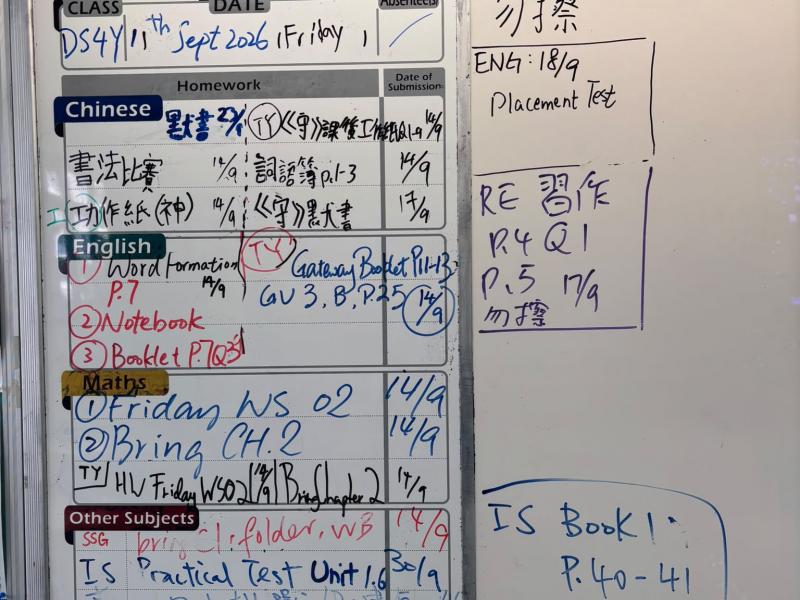 CLASS DATE Absentee(s)
DS4Y 11th Sept 2026 (Friday)
Homework Date of Submission
Chinese
默書
TY 《守》課後工作紙Q1-9 14/9
書法比賽 14/9 詞語簿p.1-3 14/9
工作紙(神) 14/9 《守》默書 17/9
English
① Word Formation P.7 14/9
② Notebook
③ Booklet P.7
TY Gateway Booklet P.11-13
GU 3, B, P.25 14/9
Maths
① Friday WS 02 14/9
② Bring CH.2 14/9
TY HW Friday WS02 14/9 Bring Chapter 2 14/9
Other Subjects
SSG bring folder, WB 14/9
IS Practical Test Unit 1.6 30/9
勿擦
ENG: 18/9
Placement Test
RE 習作
P.4 Q1
P.5 17/9
勿擦
IS Book 1
P.40-41